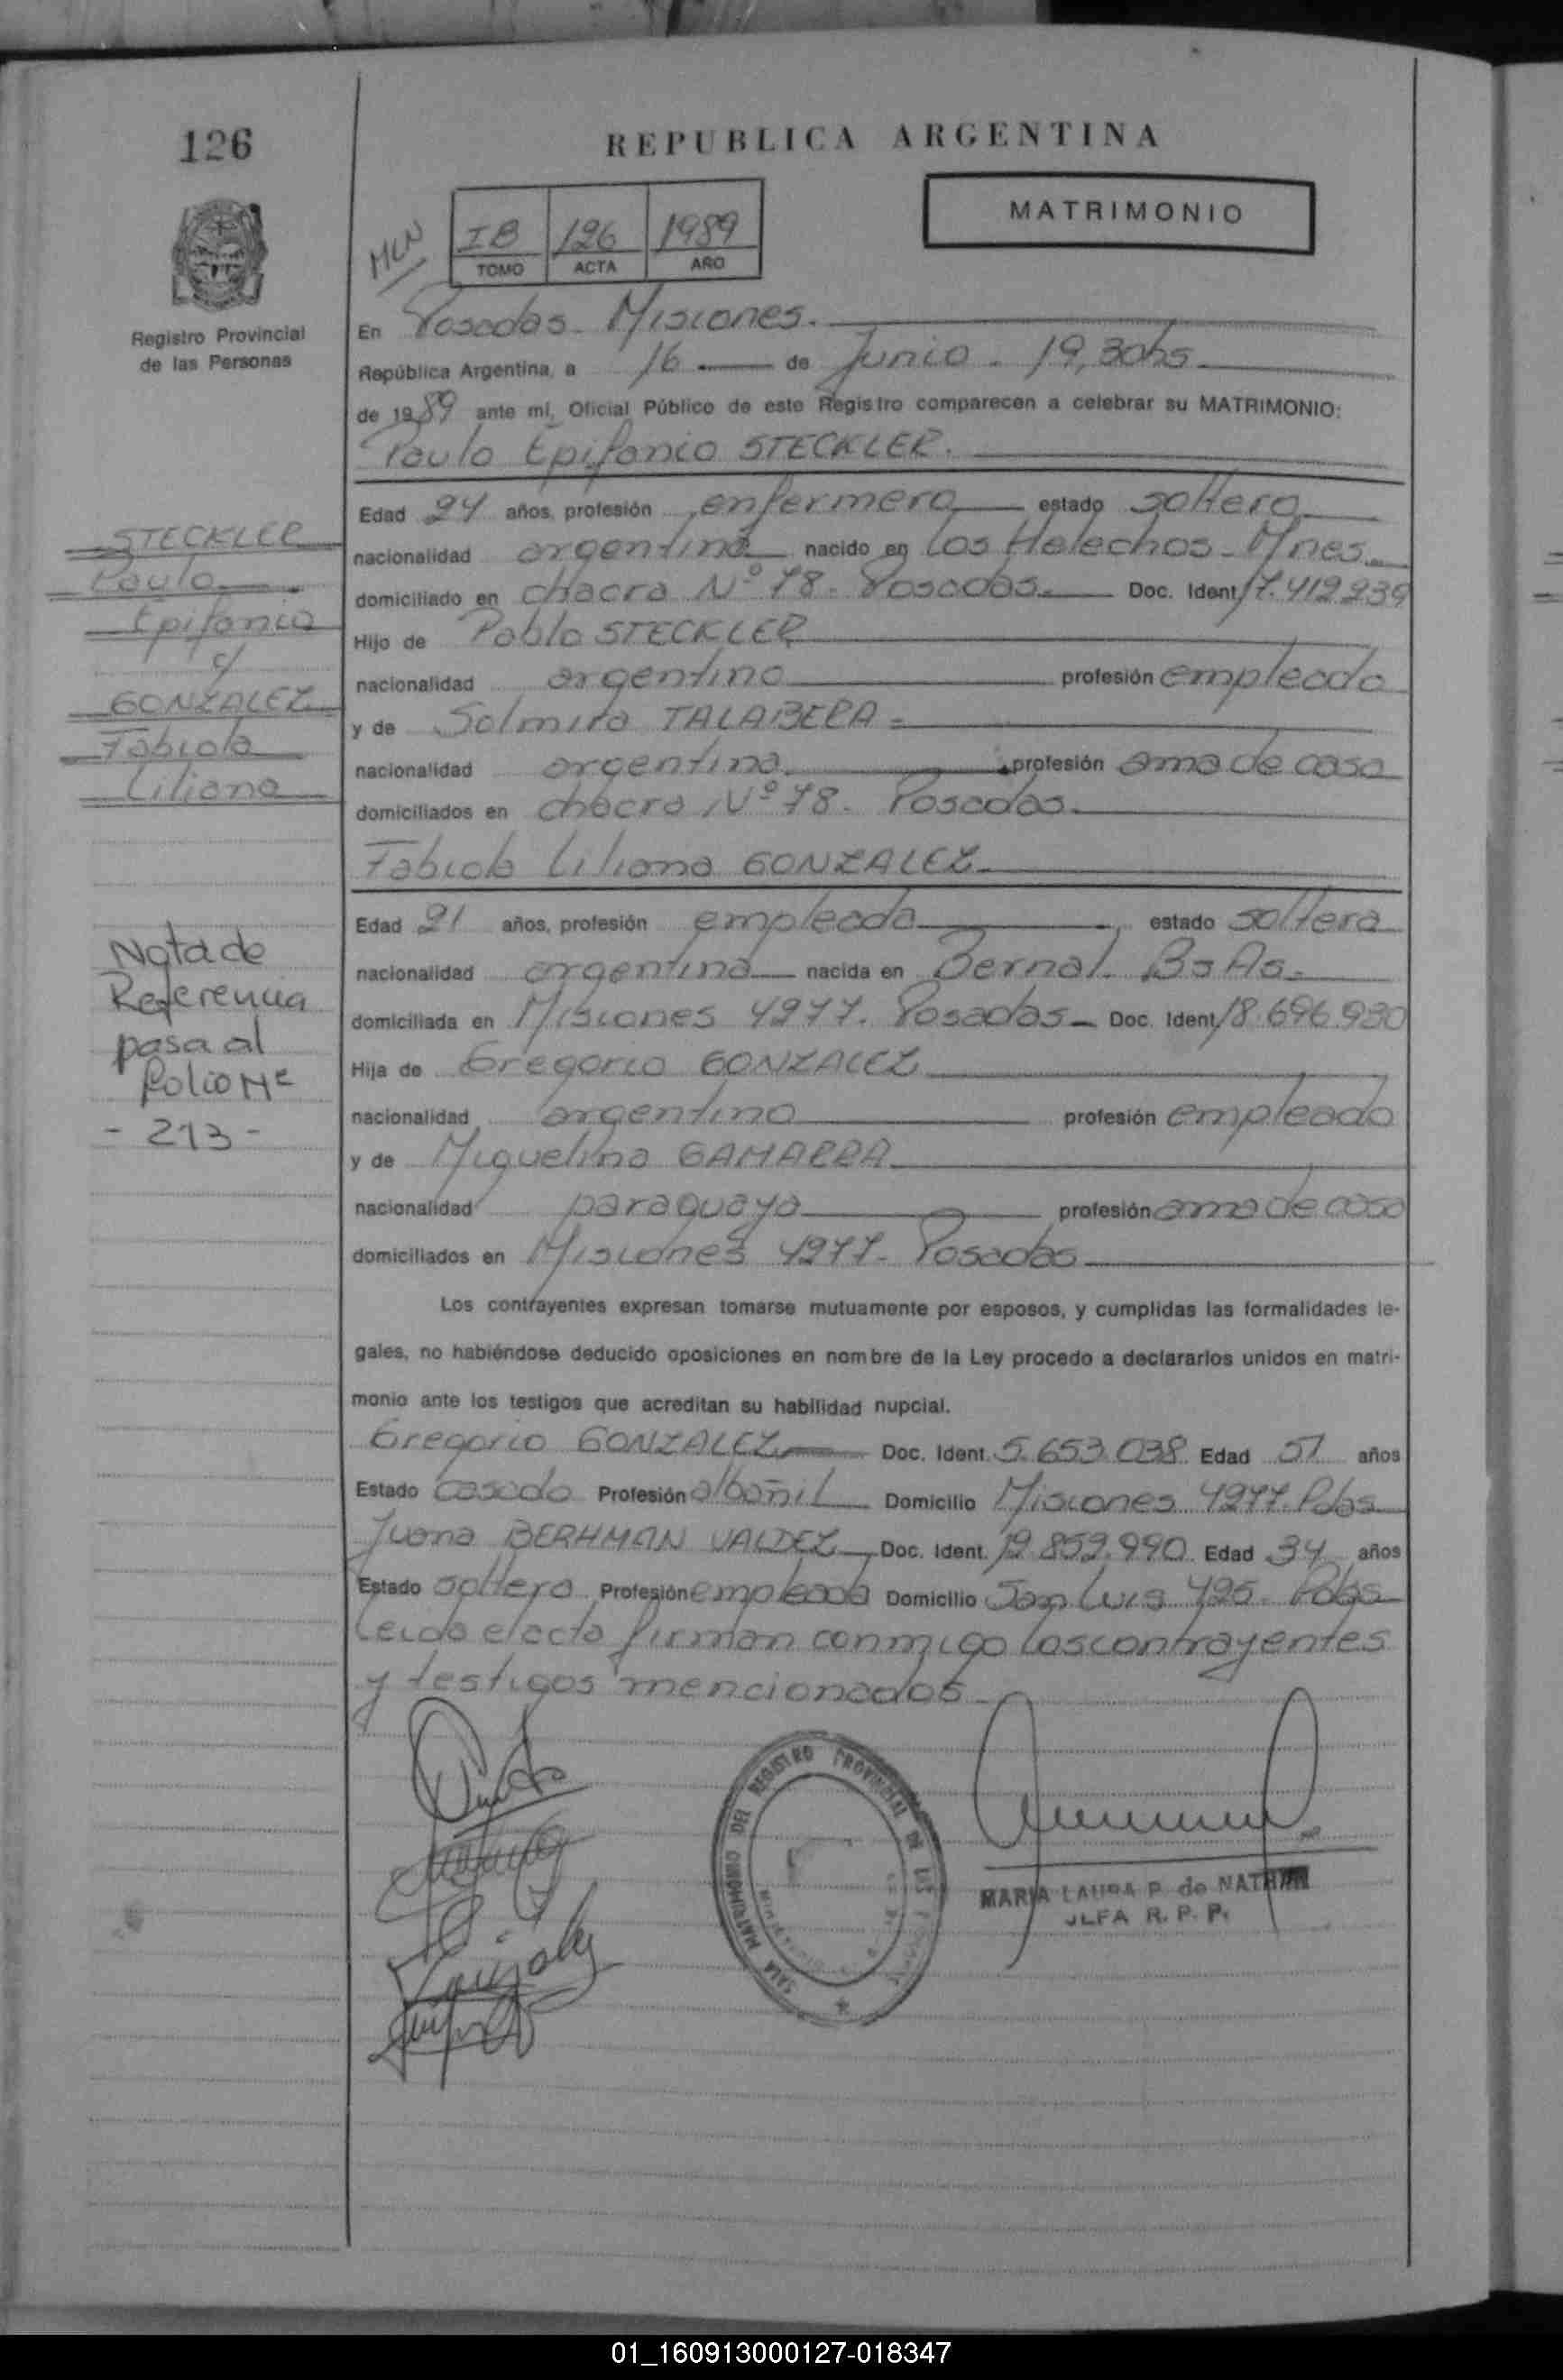 126
REPUBLICA ARGENTINA
MATRIMONIO
MLN
IB 126 1989
TOMO ACTA AÑO
Registro Provincial
de las Personas
En Posadas - Misiones.
República Argentina, a 16 de Junio - 19,30hs
de 1989 ante mi, Oficial Público de este Registro comparecen a celebrar su MATRIMONIO:
Paulo Epifanio STECKLER.
Edad 24 años, profesión enfermero estado soltero
nacionalidad argentina nacido en Los Helechos - Mnes.
domiciliado en chacra Nº 78 - Posadas. Doc. Ident. 17.412.239
Hijo de Pablo STECKLER
nacionalidad argentino profesión empleado
y de TALABERA =
nacionalidad argentina profesión ama de casa
domiciliados en chacra Nº 78 - Posadas.
Fabiola Liliana GONZALEZ
Edad 21 años, profesión empleada estado soltera
nacionalidad argentina nacida en Bernal. Bs As.
domiciliada en Misiones 4277. Posadas - Doc. Ident. 18.696.930
Hija de Gregorio GONZALEZ
nacionalidad argentino profesión empleado
y de Miguelina GAMARRA
nacionalidad paraguaya profesión ama de casa
domiciliados en Misiones 4277 - Posadas
Los contrayentes expresan tomarse mutuamente por esposos, y cumplidas las formalidades le-
gales, no habiéndose deducido oposiciones en nombre de la Ley procedo a declararlos unidos en matri-
monio ante los testigos que acreditan su habilidad nupcial.
Gregorio GONZALEZ Doc. Ident. 5.653.038 Edad 51 años
Estado casado Profesión albañil Domicilio Misiones 4277. Pdas
Juana BERHMAN VALDEZ Doc. Ident. 19.852.990 Edad 34 años
Estado soltera Profesión empleada Domicilio San Luis 425. Pdas
Leida el acta firman conmigo los contrayentes
y testigos mencionados
STECKLER
Paulo
Epifanio
c/
GONZALEZ
Fabiola
Liliana
Nota de
Referencia
pasa al
folio Nº
- 213 -
SALA MATRIMONIO DEL REGISTRO PROVINCIAL DE LAS
MARIA LAURA P. de NATHAN
JEFA R. P. P.
01_160913000127-018347